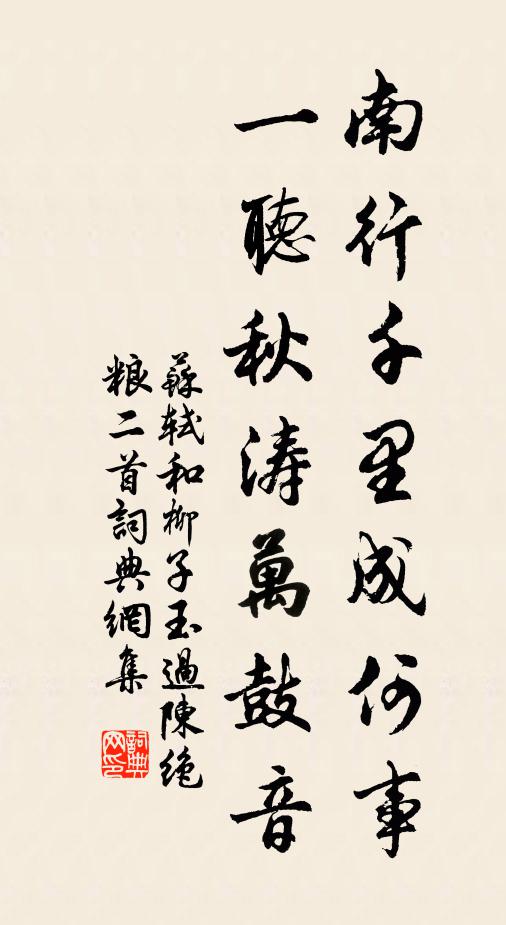 南行千里成何事
一聽秋濤萬鼓音
蘇軾和柳子玉過陳絶
粮二首詞典網集
詞典
网印